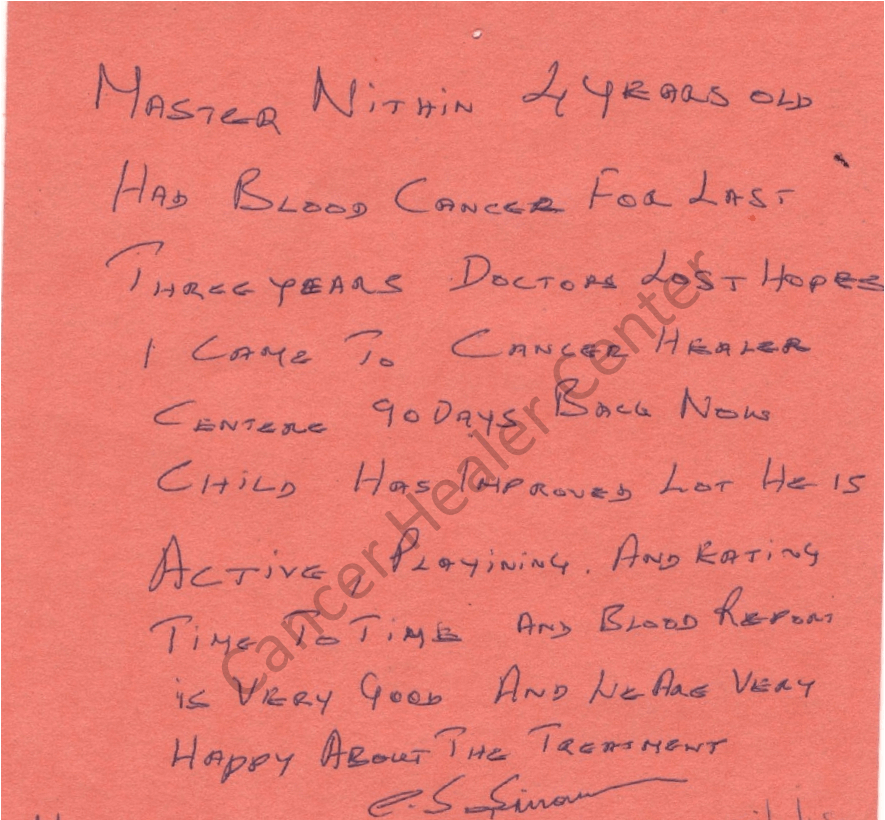 MASTER NITHIN 4 YEARS OLD
HAD BLOOD CANCER FOR LAST
THREE YEARS DOCTORS LOST HOPES
I CAME TO CANCER HEALER
CENTERE 90 DAYS BACK NOW
CHILD HAS IMPROVED LOT HE IS
ACTIVE, PLAYINING. AND EATING
TIME TO TIME AND BLOOD REPORT
IS VERY GOOD AND WE ARE VERY
HAPPY ABOUT THE TREATMENT
Cancer Healer Center